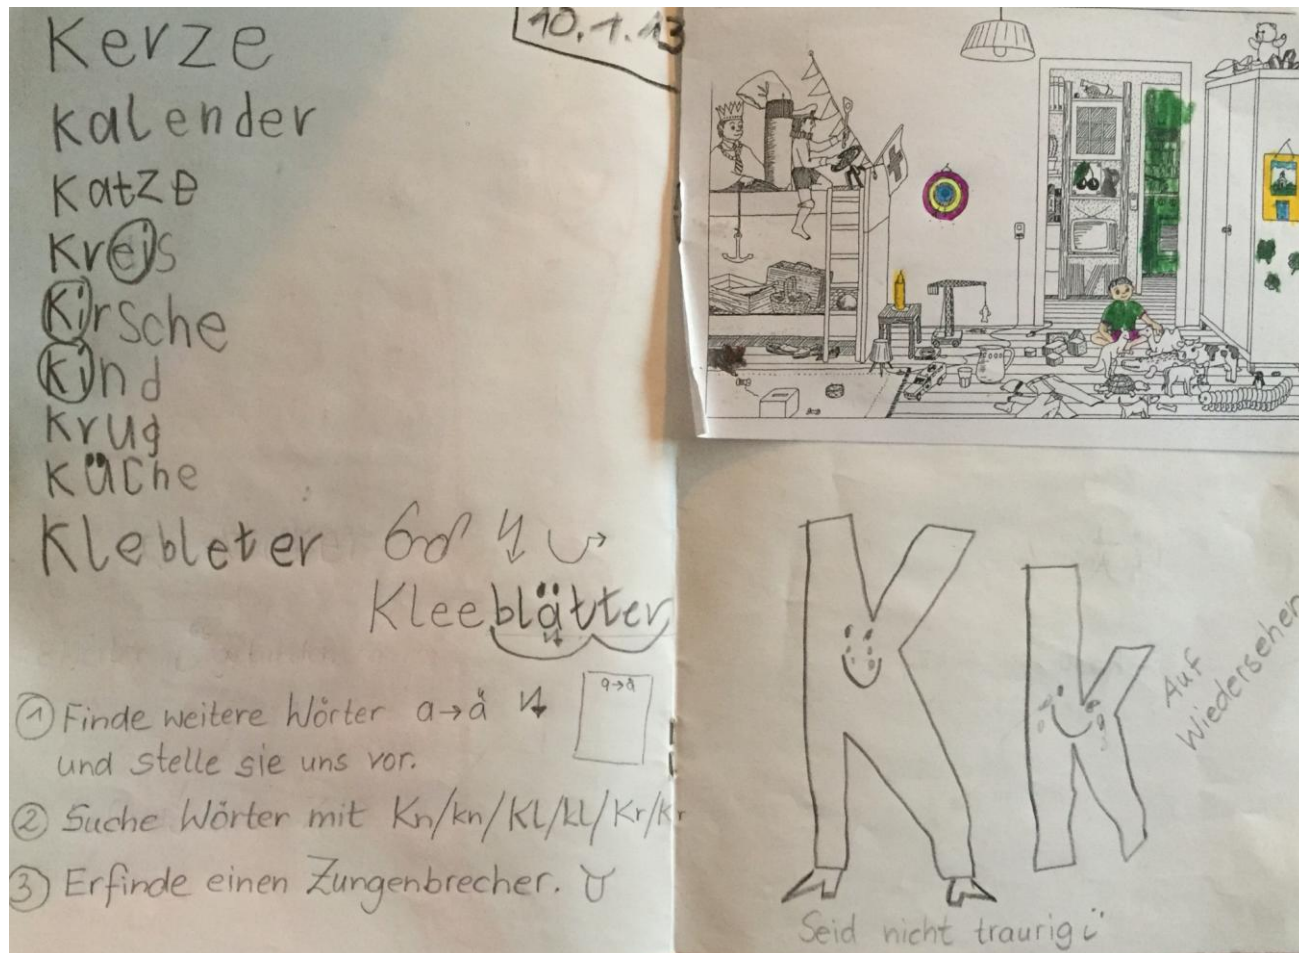 10.1.13
Kerze
Kalender
Katze
Kreis
Kirsche
Kind
Krug
Küche
Klebleter
Kleeblätter
① Finde weitere Wörter a→ä
a→ä
und stelle sie uns vor.
② Suche Wörter mit Kn/kn/Kl/kl/Kr/kr
③ Erfinde einen Zungenbrecher.
K k
Auf
Wiedersehen
Seid nicht traurig